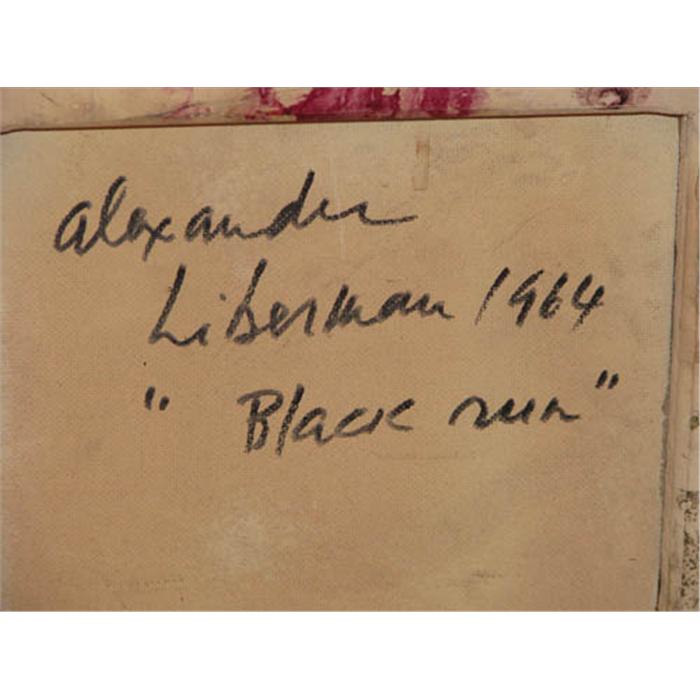 alexander
Liberman 1964
" Black run"